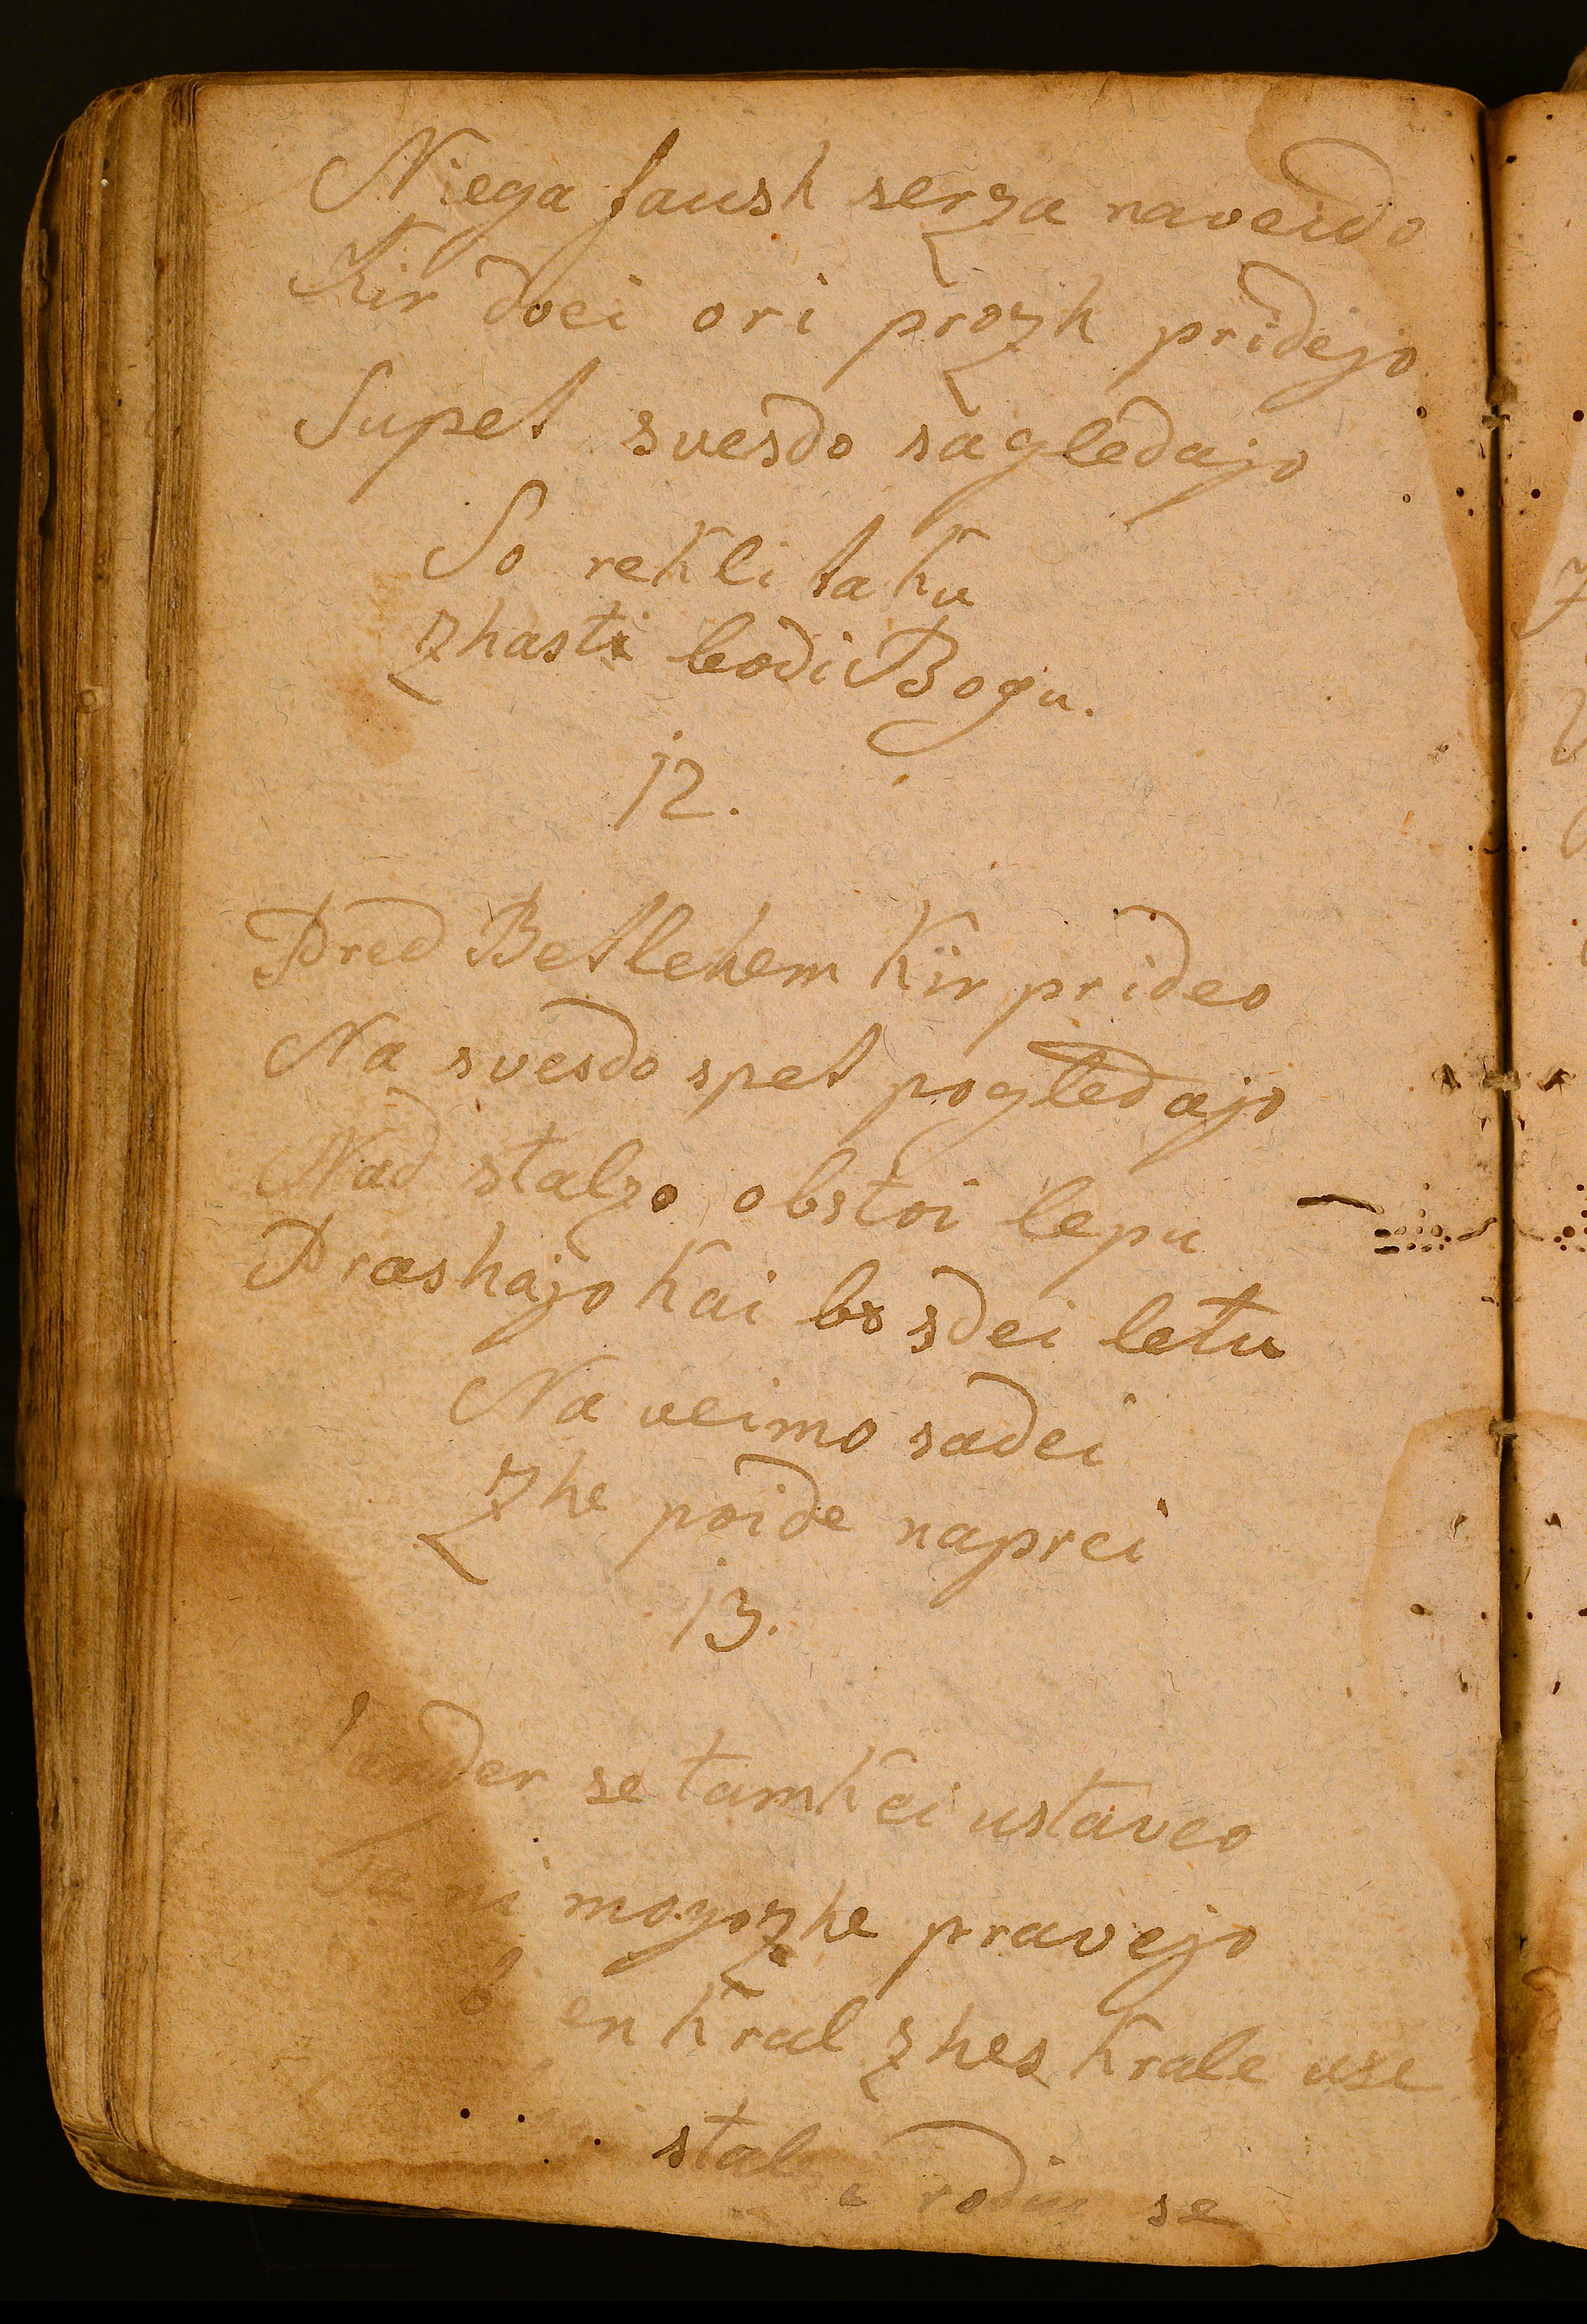 Niega faush serza naveido
Kir dvei ori prozh pridejo
Supet svesdo sagledajo
So rekli taku
Zhasti bodi Bogu.
12.
Pred Betlehem kir prideo
Na svesdo spet pogledajo
Nad stalzo obstoi lepu
Prashajo kai bo sdei letu
Na veimo sadei
Zhe poide naprei
13.
se tamkei ustaveo
ni mogozhe pravejo
en kral zhes krale use
stal rodiu se